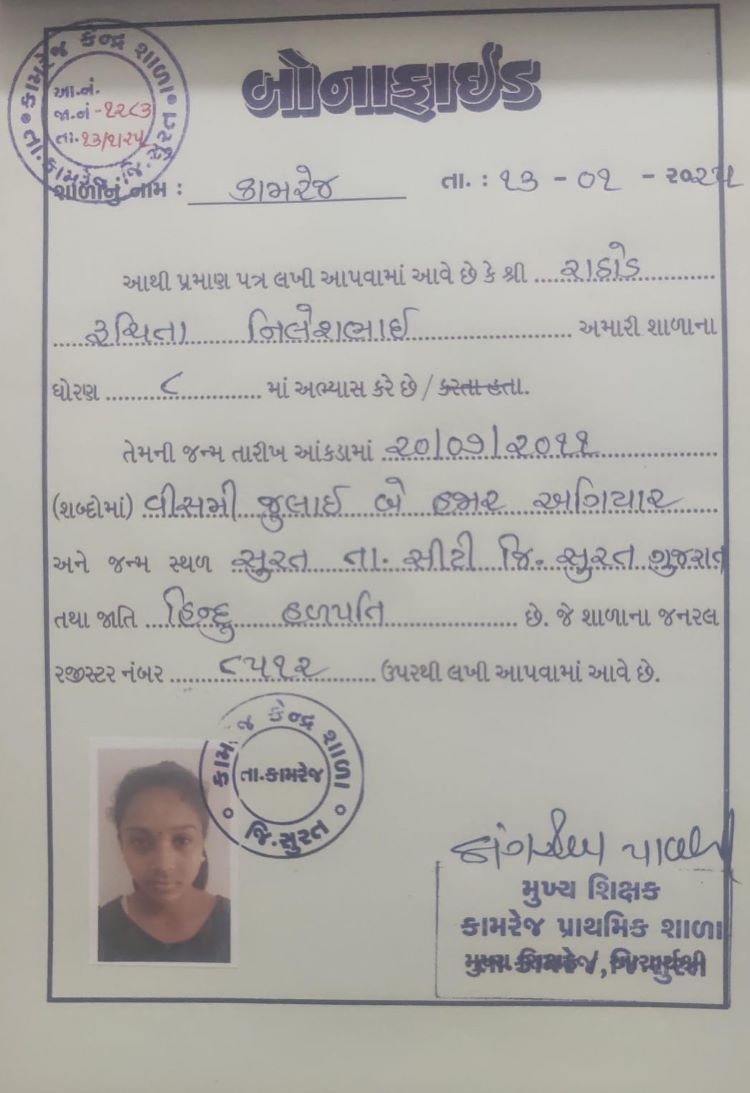 કામરેજ કેન્દ્ર શાળા
તા. કામરેજ જિ. સુરત
આ.નં.
જા.નં - ૧૨૮૩
તા. ૧૩/૧/૨૫
બોનાફાઈડ
શાળાનું નામ : કામરેજ તા. : ૧૩ - ૦૧ - ૨૦૨૫
આથી પ્રમાણ પત્ર લખી આપવામાં આવે છે કે શ્રી રાઠોડ
રૂચિતા નિલેશભાઈ અમારી શાળાના
ધોરણ ૮ માં અભ્યાસ કરે છે / કરતા હતા.
તેમની જન્મ તારીખ આંકડામાં ૨૦/૦૭/૨૦૧૧
(શબ્દોમાં) વીસમી જુલાઈ બે હજાર અગિયાર
અને જન્મ સ્થળ સુરત તા. સીટી જિ. સુરત ગુજરાત
તથા જાતિ હિન્દુ હળપતિ છે. જે શાળાના જનરલ
રજીસ્ટર નંબર ૮૫૧૨ ઉપરથી લખી આપવામાં આવે છે.
કામરેજ કેન્દ્ર શાળા
તા. કામરેજ
જિ. સુરત
મુખ્ય શિક્ષક
કામરેજ પ્રાથમિક શાળા